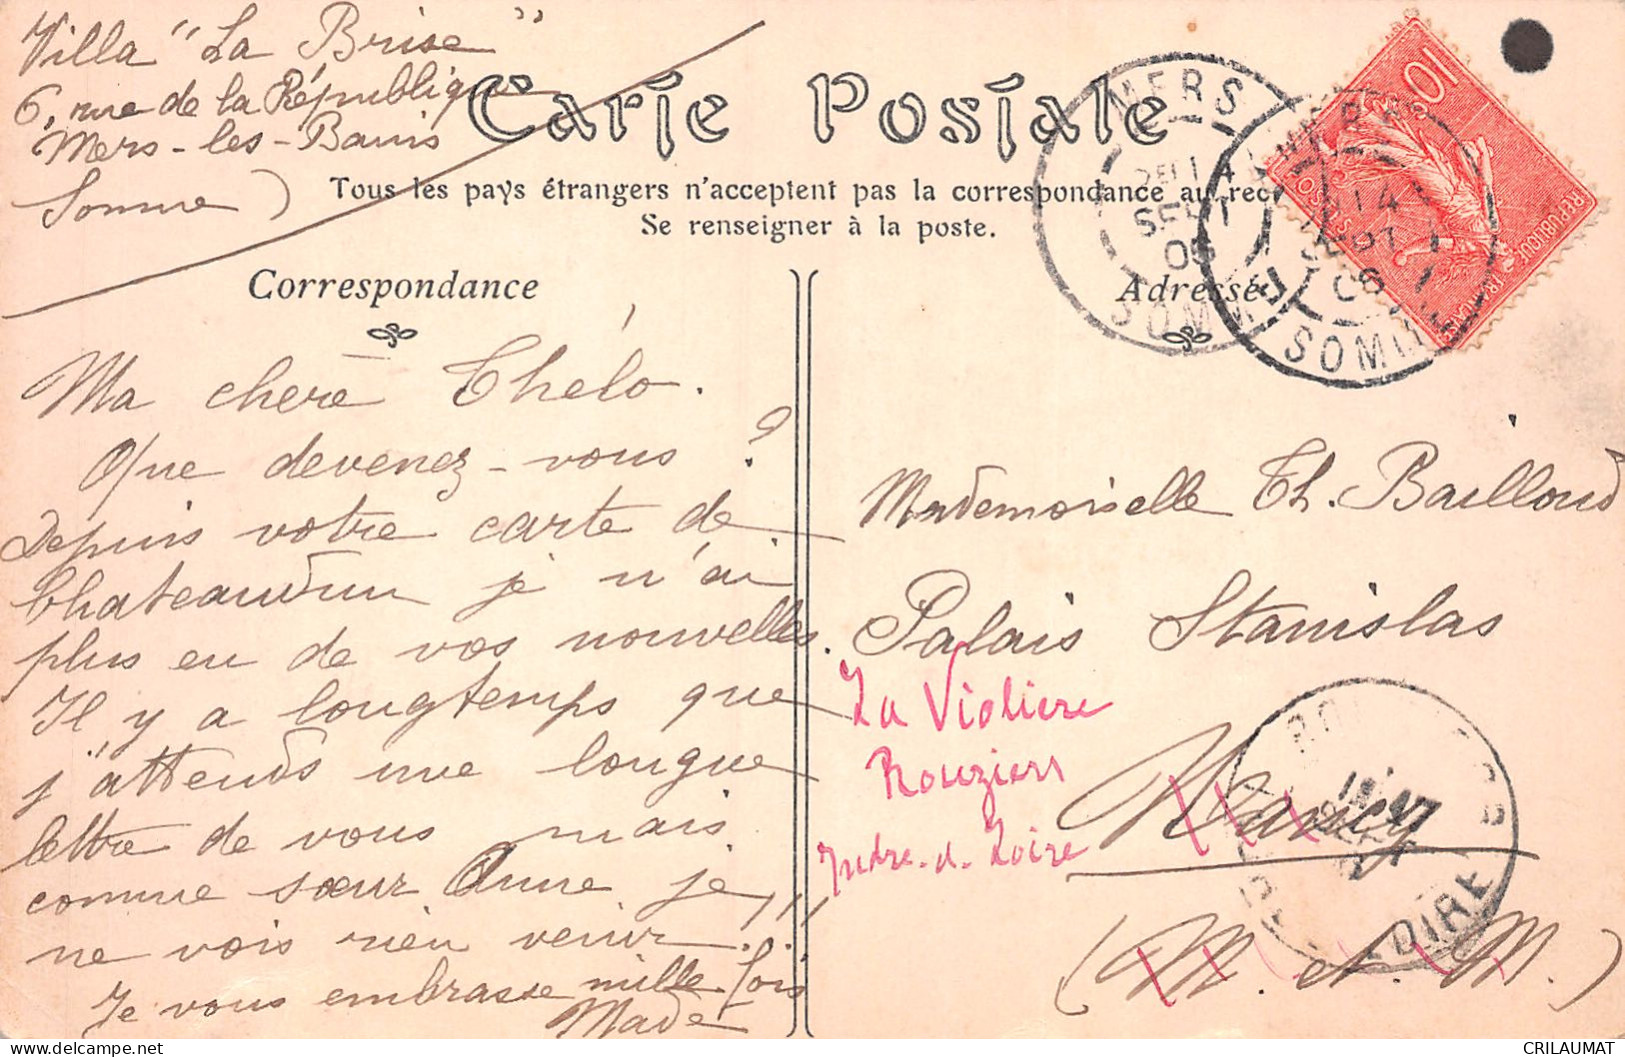 Villa "La Brise"
6, rue de la République
Mers-les-Bains
Somme)
Carte Postale
Tous les pays étrangers n'acceptent pas la correspondance au rec
Se renseigner à la poste.
Correspondance
Adresse
Ma chère Thélo.
Que devenez-vous ?
Depuis votre carte de
Chateaudun je n'ai
plus eu de vos nouvelles.
Il y a longtemps que
j'attends une longue
lettre de vous mais
comme sœur Anne je
ne vois rien venir!!!
Je vous embrasse mille fois
Made
Mademoiselle Th. Bailloud
Palais Stanislas
Nancy
(M. et M.)
La Violiere
Rouziers
Indre-et-Loire
MERS
SEPT
05
SOMME
MERS
14
SEPT
05
SOMME
10
POSTES
REPUBLIQUE FRANÇAISE
LOIRE
CRILAUMAT